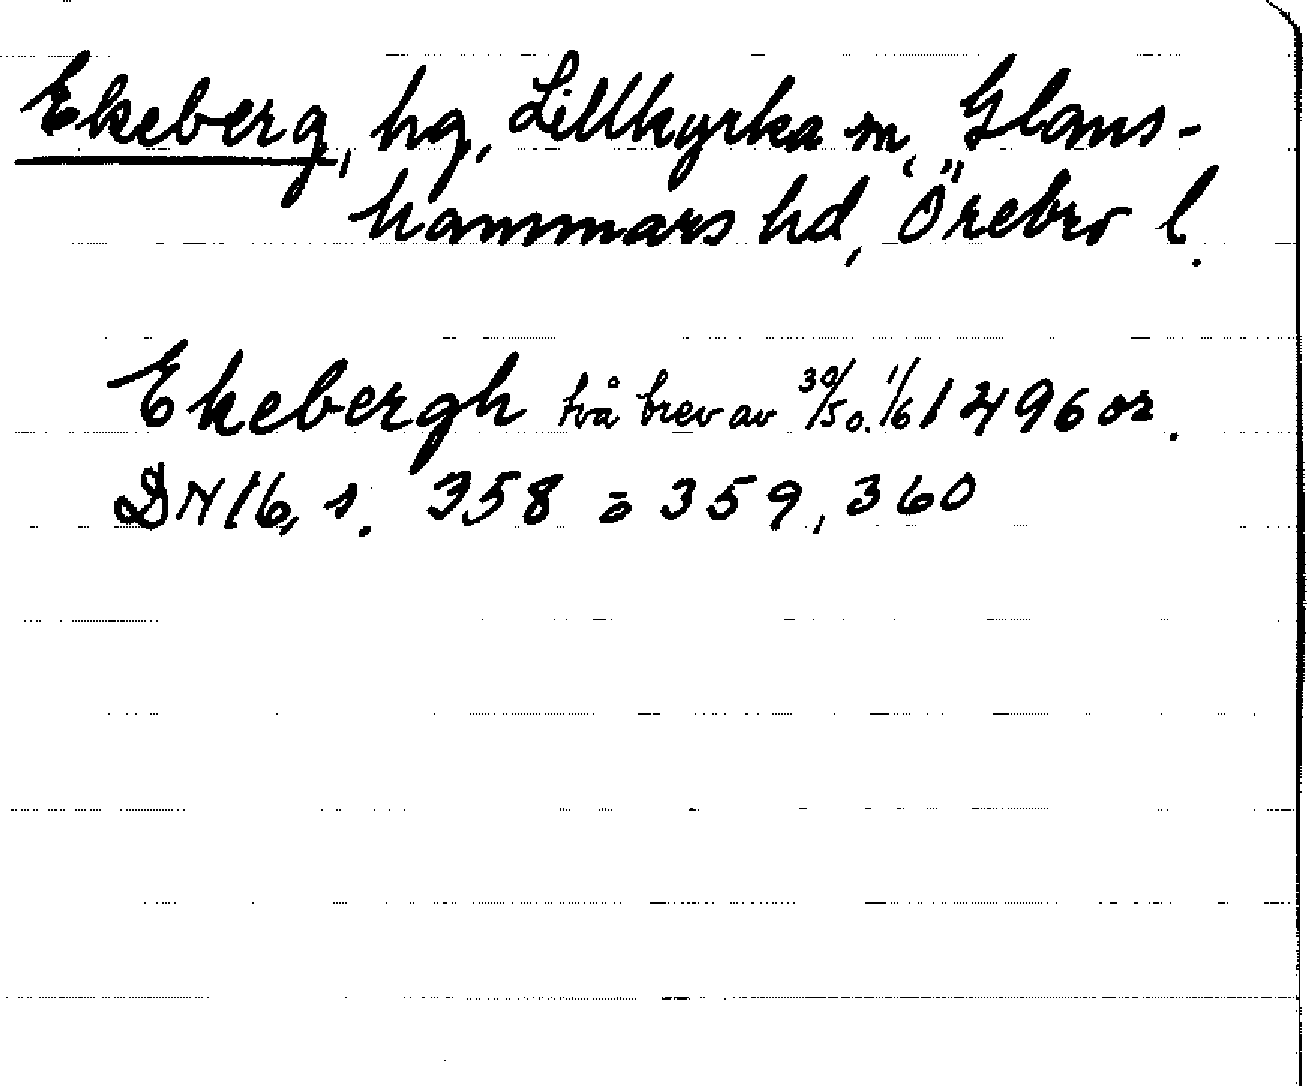 Ekeberg, hg, Lillkyrka sn, Glans-
hammars hd, Örebro l.
Ekebergh två brev av 30/5 o. 1/6 1496 or.
DN 16, s. 358 o 359, 360